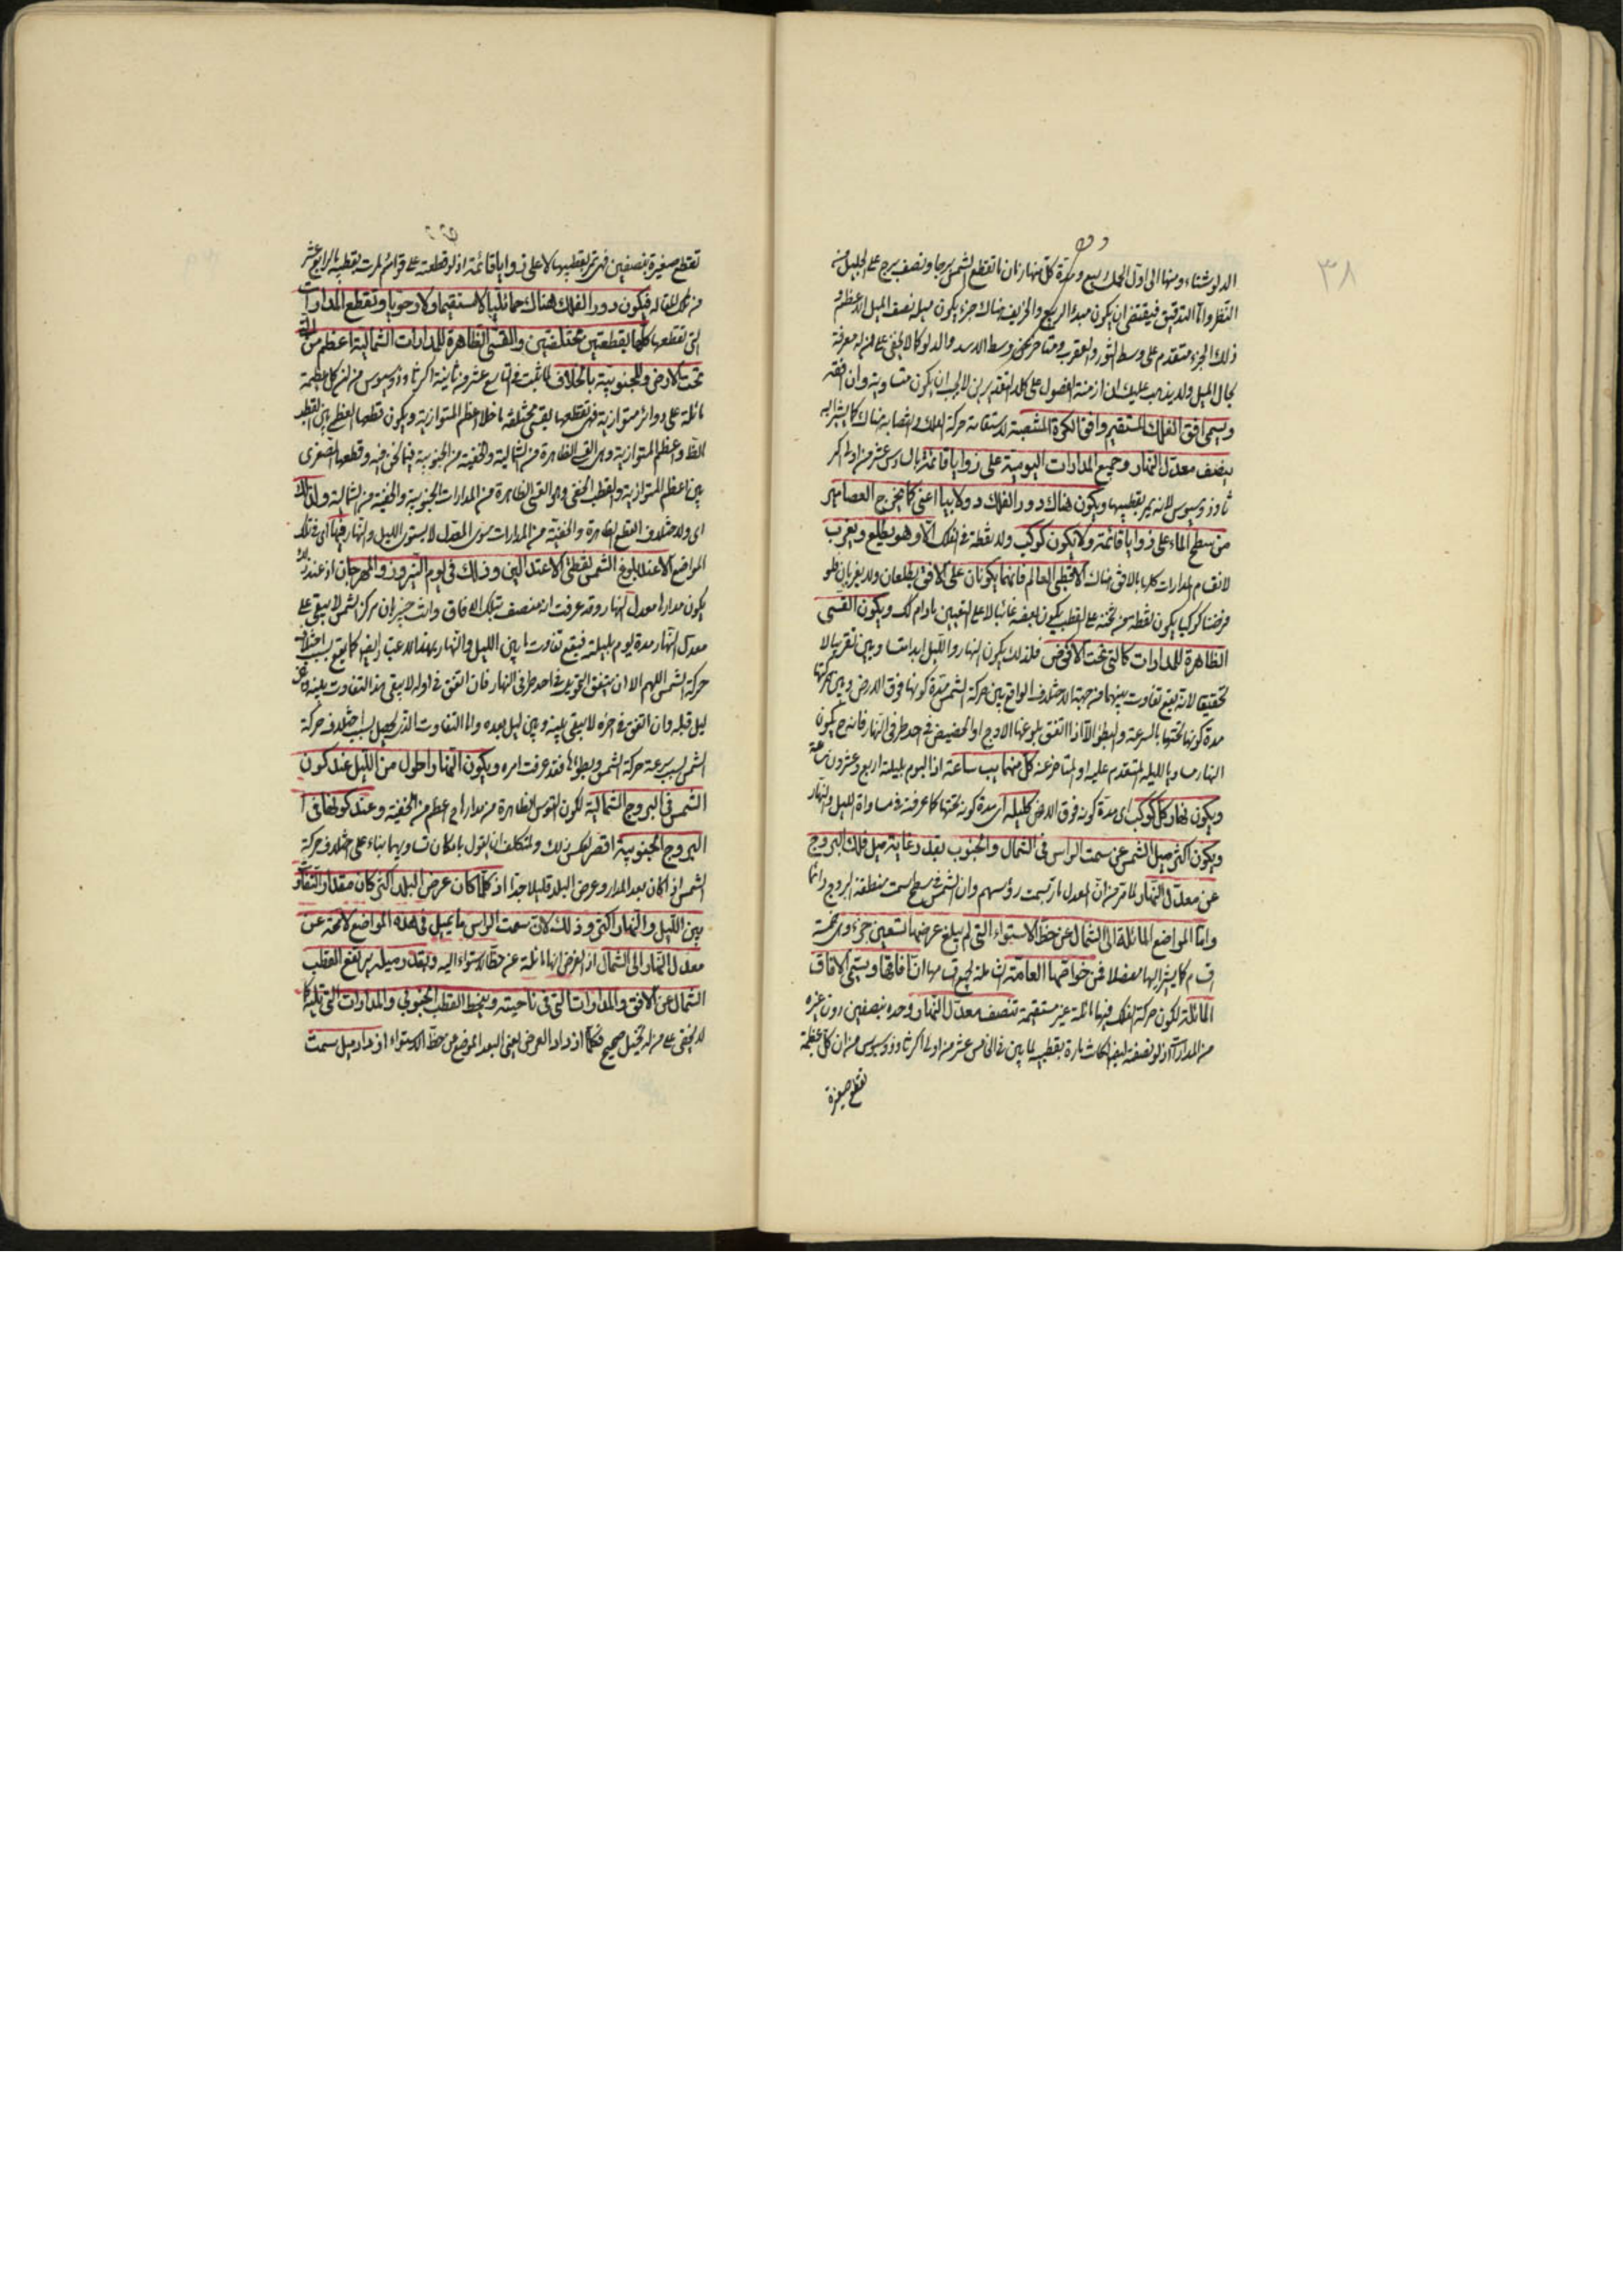 ٣٨
الدلو شتاء ومنها الى اول الحمل ربيع ومدة كل منها زمان ما تقطع الشمس برجا ونصف برج على الجليل من
النظر واما التدقيق فيقتضى ان يكون مبدأ الربيع والخريف هناك جزء يكون ميله نصف الميل الاعظم و
ذلك الجزء متقدم على وسط الثور والعقرب ومتاخر عن وسط الاسد والدلو كما لا يخفى على من له معرفة
بحال الميل ولا يذهب عليك ان ازمنة الفصول على كلا التقديرين لا يجب ان يكون متساوية وان افقه
ويسمى افق الفلك المستقيم وافق الكرة المنتصبة لاستقامة حركة الفلك وانتصابه هناك كما يشير اليه
ينصف معدل النهار وجميع المدارات اليومية على زوايا قائمة بالسادس عشر من اولى اكر
ثاوذوسيوس لانه يمر بقطبيها ويكون هناك دور الفلك دولابيا اعنى كما يخرج العصامير
من سطح الماء على زوايا قائمة ولا يكون كوكب ولا نقطة فى الفلك الا وهو يطلع ويغرب
لانقسام المدارات كلها بالافق هناك الا قطبى العالم فانهما يكونان على الافق لا يطلعان ولا يغربان فلو
فرضنا كوكبا يكون نقطة من ثخنه على القطب يكون بعضه غائبا لا على التعيين ما دام كك ويكون القسى
الظاهرة للمدارات كالتى تحت الارض فلذلك يكون النهار والليل ابدا متساويين تقريبا لا
تحقيقا لانه يقع تفاوت بينهما من جهة الاختلاف الواقع بين حركة الشمس مدة كونها فوق الارض وبين حركتها
مدة كونها تحتها بالسرعة والبطؤ الا اذا اتفق بلوغها الاوج او الحضيض فى احد طرفى النهار فانه ح يكون
النهار مساويا لليلة المتقدم عليه او المتاخر عنه كل منهما يب ساعة اذ اليوم بليلته اربع وعشرون ساعة
ويكون نهار كل كوكب اى مدة كونه فوق الارض كليله اى مدة كونه تحتها كما عرفت من مساواة الليل والنهار
ويكون اكثر ميل الشمس عن سمت الراس فى الشمال والجنوب بقدر غاية ميل فلك البروج
عن معدل النهار لما مر من ان المعدل مار بسمت رؤسهم وان الشمس فى سطح سمت منطقة البروج دائما
واما المواضع المائلة الى الشمال عن خط الاستواء التى لم يبلغ عرضها تسعين جزء وهى خمسة
اقسام كما يشير اليها مفصلا فمن خواصها العامة الشاملة لجميع اقسامها ان آفاقها ويسمى الآفاق
المائلة لكون حركة الفلك فيها مائلة غير مستقيمة تنصف معدل النهار وحده بنصفين دون غيره
من المدارات اذ لو نصفه ايضا لكانت مارة بقطبيه لما بين فى الخامس عشر من اولى اكر ثاوذوسيوس من ان كل عظيمة
تقطع صغيرة
تقطع صغيرة بنصفين فهى تمر بقطبيها لا على زوايا قائمة اذ لو قطعته على قوائم لمرت بقطبيه بالرابع عشر
من تلك المقالة فيكون دور الفلك هناك حمائليا لا مستقيما ولا رحويا وتقطع المدارات
التى تقطعها كلها بقطعتين مختلفتين والقسى الظاهرة للمدارات الشمالية اعظم من التى
تحت الارض وللجنوبية بالخلاف لما ثبت فى التاسع عشر من ثانية اكر ثاوذوسيوس من ان كل عظيمة
مائلة على دوائر متوازية فهى تقطعها بقسى مختلفة ما خلا اعظم المتوازية ويكون قطعها العظمى بين القطب
الظاهر واعظم المتوازية وهى القسى الظاهرة من الشمالية والخفية من الجنوبية فيما نحن فيه وقطعها الصغرى
بين اعظم المتوازية والقطب الخفى وهو القسى الظاهرة من المدارات الجنوبية والخفية من الشمالية ولذلك
اى ولاختلاف القطع الظاهرة والخفية من المدارات سوى المعدل لا يستوى الليل والنهار فيها اى فى تلك
المواضع الا عند بلوغ الشمس نقطتى الاعتدالين وذلك فى يوم النيروز والمهرجان اذ عند ذلك
يكون مدارها معدل النهار وقد عرفت انه منتصف بتلك الآفاق وانت خبير بان مركز الشمس لا يبقى على
معدل النهار مدة يوم بليلته فيقع تفاوت ما بين الليل والنهار بهذا الاعتبار ايضا كما يقع بسبب اختلاف
حركة الشمس اللهم الا ان يتفق التحويل فى احد طرفى النهار فان اتفق فى اوله لا يبقى هذا التفاوت بينه وبين
ليل قبله وان اتفق فى آخره لا يبقى بينه وبين ليل بعده واما التفاوت الذى يحصل بسبب اختلاف حركة
الشمس بسبب سرعة حركة الشمس وبطؤها فقد عرفت امره ويكون النهار اطول من الليل عند كون
الشمس فى البروج الشمالية لكون القوس الظاهرة من مداراتها اعظم من الخفية وعند كونها فى
البروج الجنوبية اقصر لعكس ذلك ولمتكلف ان يقول بامكان تساويهما بناء على اختلاف حركة
الشمس اذا كان بعد المدار وعرض البلد قليلا جدا اذ كلما كان عرض البلد اكثر كان مقدار التفاوت
بين الليل والنهار اكثر وذلك لان سمت الراس ما يميل فى هذه المواضع لا محة عن
معدل النهار الى الشمال اذ الفرض انها مائلة عن خط الاستواء اليه وبقدر ميله يرتفع القطب
الشمالى عن الافق والمدارات التى فى ناحيته وينحط القطب الجنوبى والمدارات التى تليه كما
لا يخفى على من له تخيل صحيح فكلما ازداد العرض اعنى البعد الموضع عن خط الاستواء ازداد ميل سمت